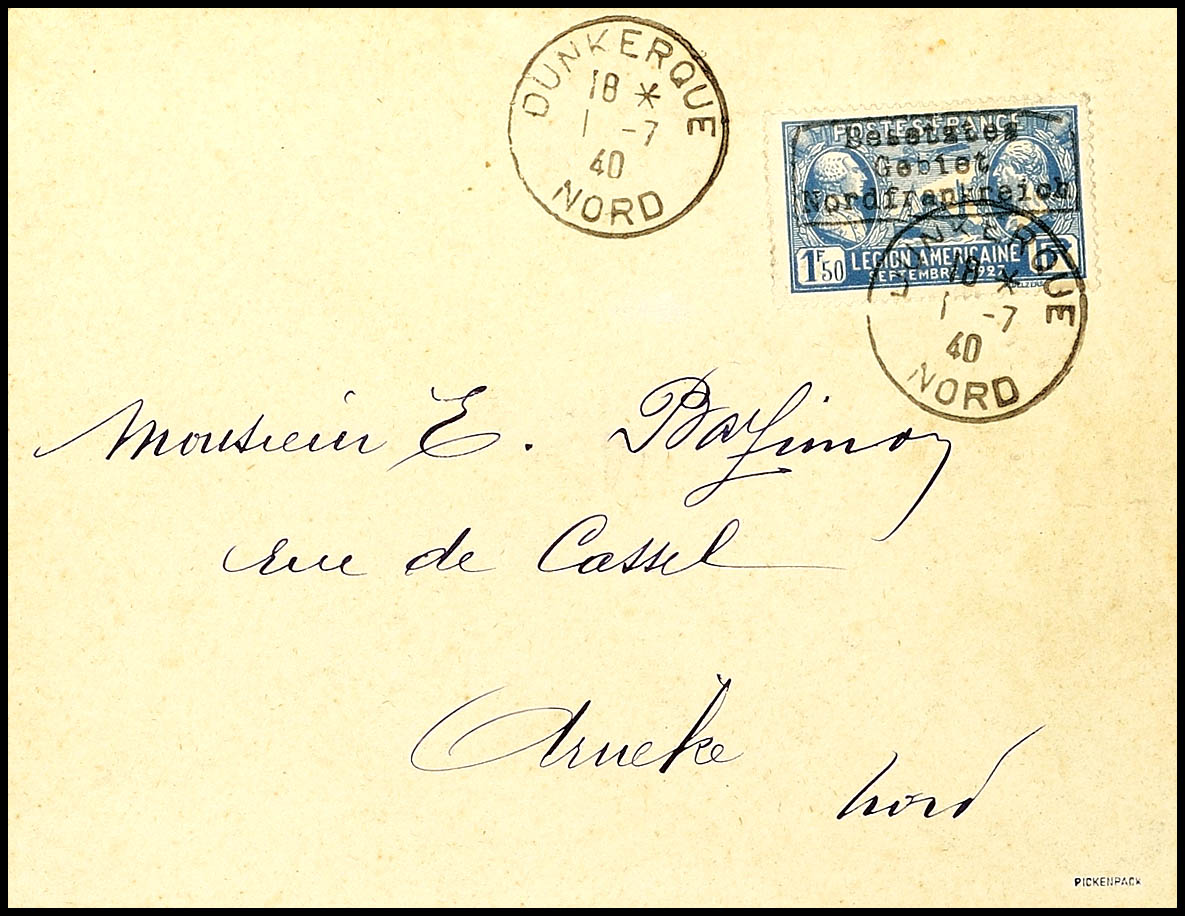 DUNKERQUE
18 *
1 -7
40
NORD
POSTES FRANCE
Besetztes
Gebiet
Nordfrankreich
1F50
LEGION AMERICAINE
SEPTEMBRE 1927
DUNKERQUE
18 *
1 -7
40
NORD
Monsieur E.
rue de Cassel
Arneke
Nord
PICKENPACK